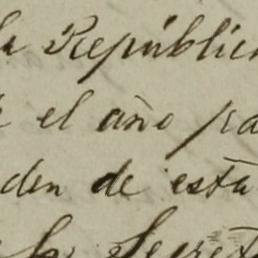 la República
el año pa
den de esta
Secret